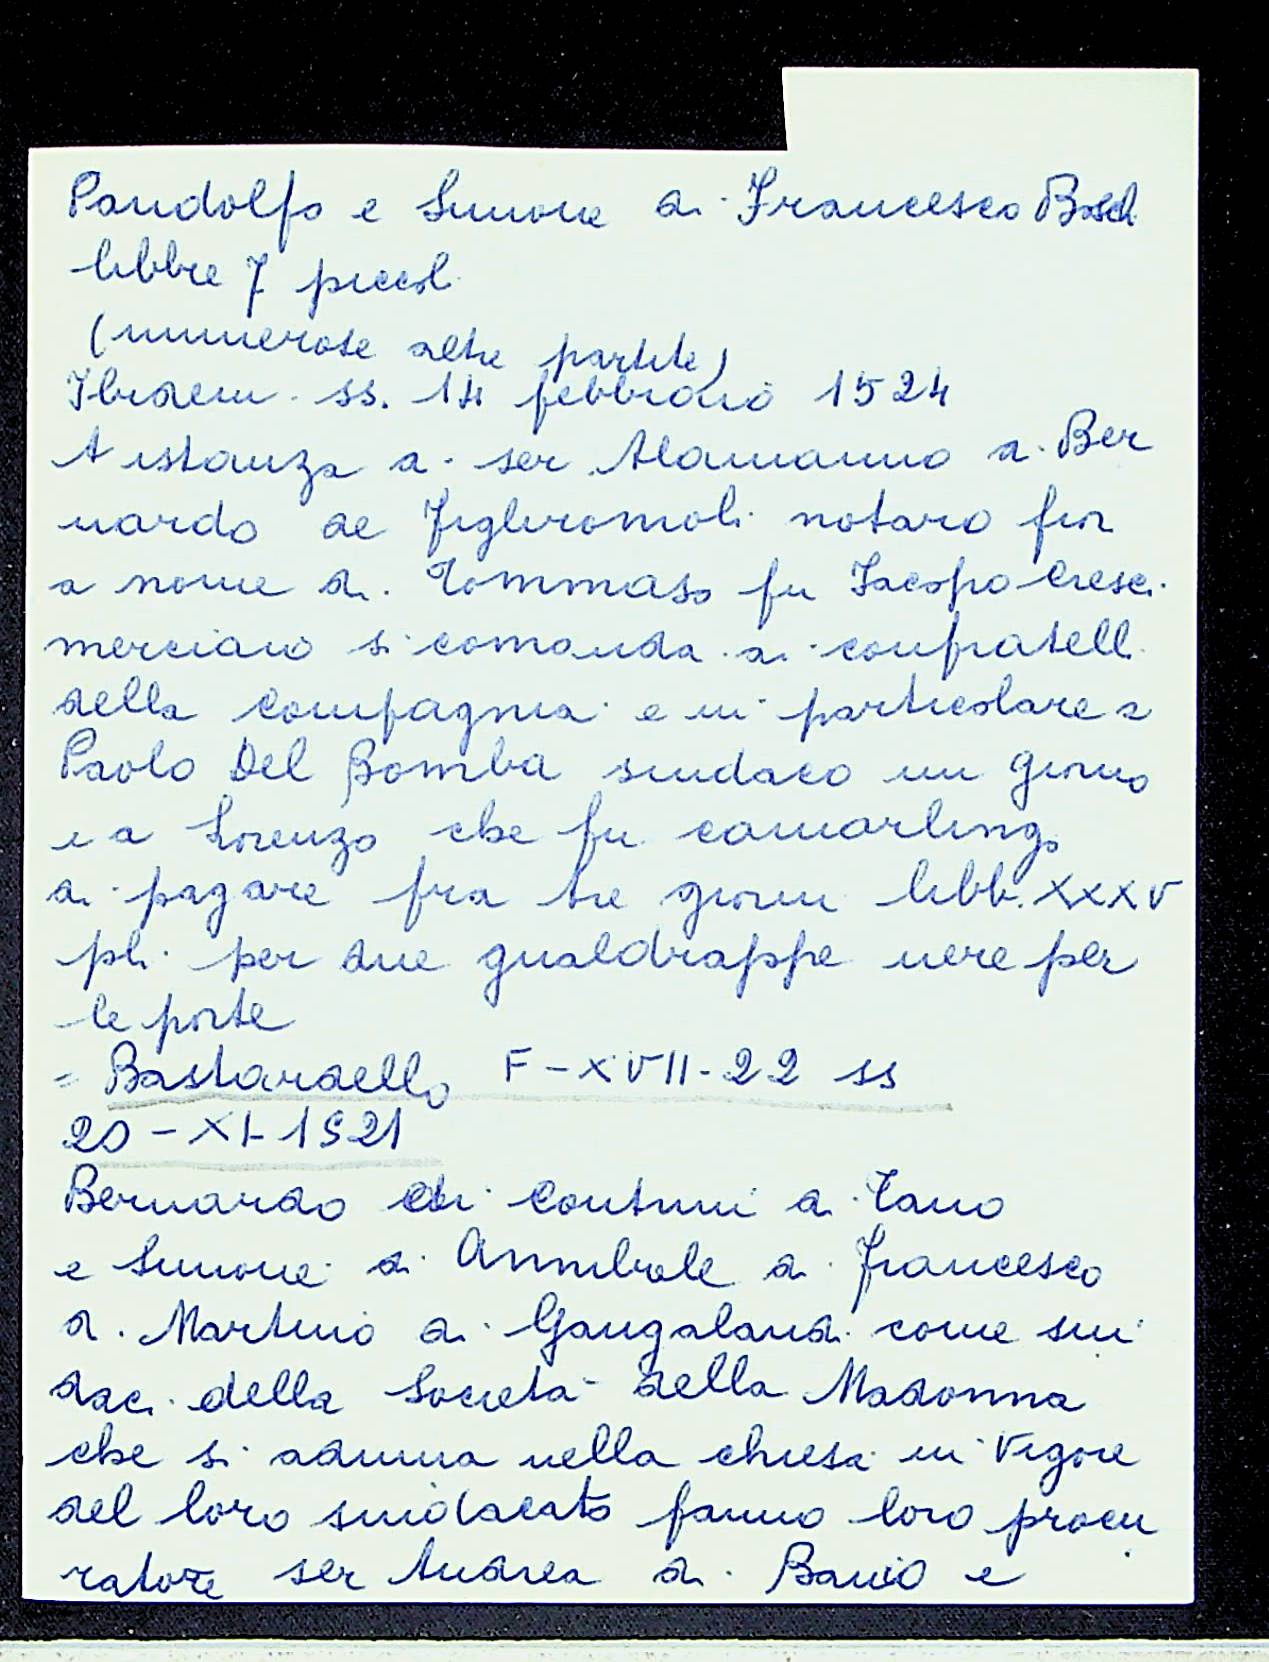 Pandolfo e Simone di Francesco Bosch
libbre 7 piccol.
(numerose altre partite)
Ibidem ss. 14 febbraio 1524
A istanza di ser Alamanno di Ber
nardo de Figliromoli notaro fior
a nome di Tommaso fu Iacopo Cresci
merciaio si comanda ai confratelli
della Compagnia e in particolare a
Paolo Del Bomba sindaco un giorno
e a Lorenzo che fu camarlingo
di pagare fra tre giorni libb. XXXV
pli. per due gualdrappe nere per
le porte
= Bastardello F-XVII-22 ss
20-XI-1521
Bernardo di Contuni di Tano
e Simone di Annibale di Francesco
di Martino di Gangalandi come sin
daci della Società della Madonna
che si aduna nella chiesa in vigore
del loro sindacato fanno loro procu
ratore ser Andrea di e